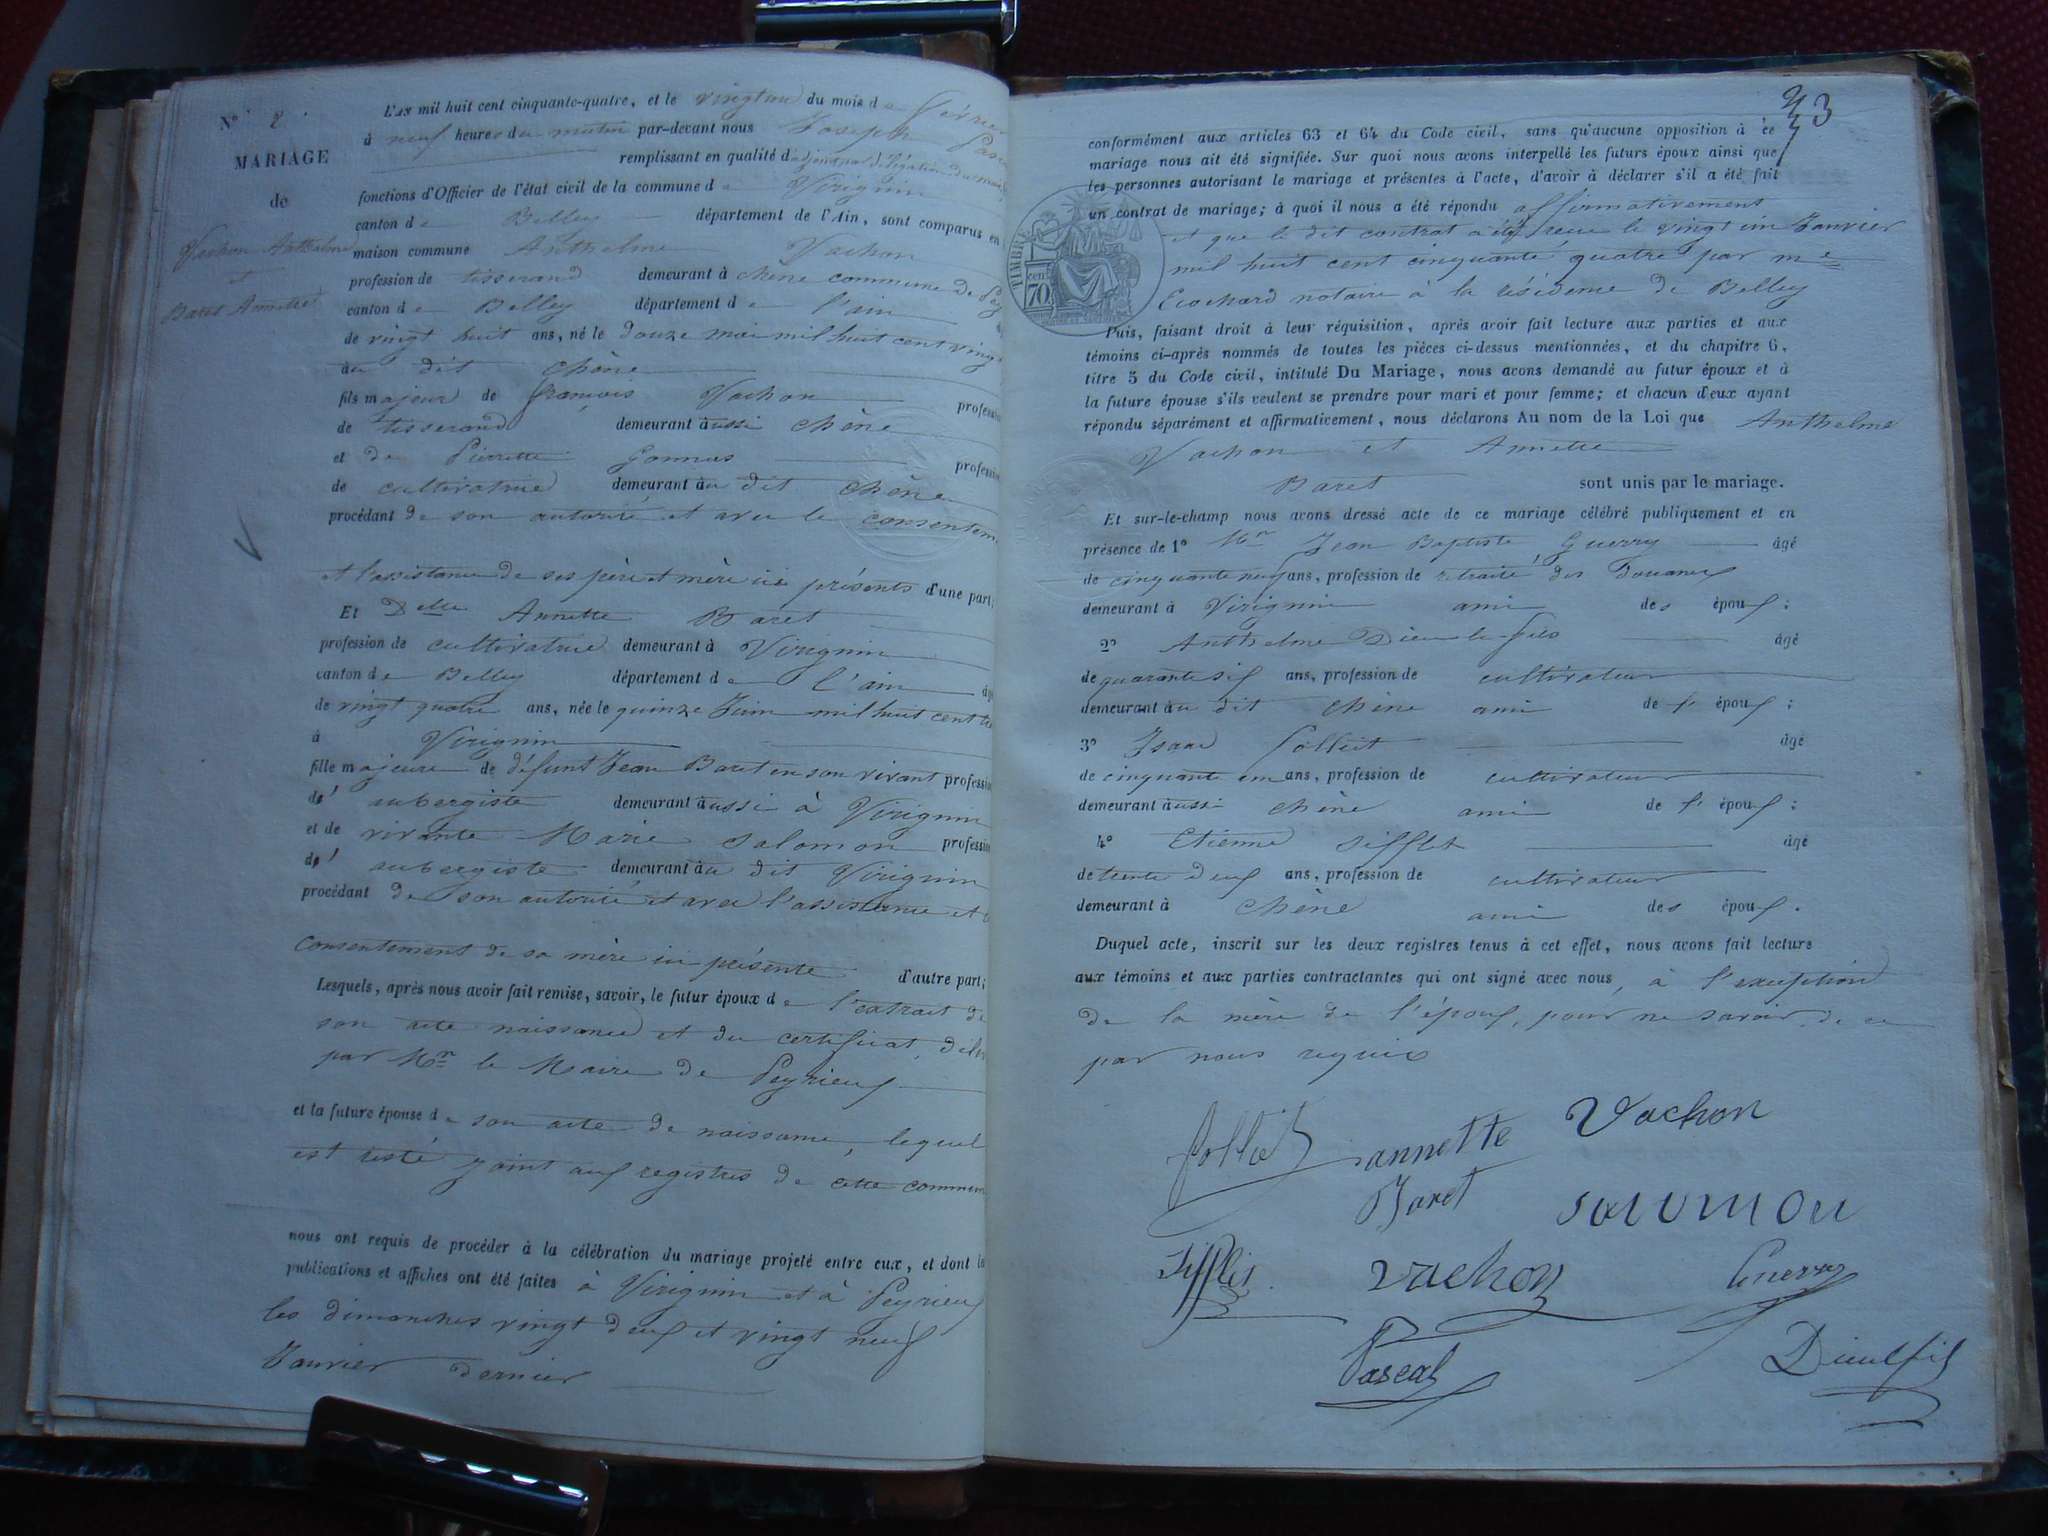 N° 2.
MARIAGE
de
Vachon Anthelme
et
Baret Annette
L'AN mil huit cent cinquante-quatre, et le vingt un du mois de février
à neuf heures du matin par-devant nous Joseph
remplissant en qualité d'adjoint par délégation du maire
fonctions d'Officier de l'état civil de la commune de Virignin
canton de Belley département de l'Ain, sont comparus en
maison commune Anthelme Vachon
profession de tisserand demeurant à chêne commune de
canton de Belley département de l'ain
de vingt huit ans, né le douze mai mil huit cent vingt
au dit chêne
fils majeur de françois Vachon profession
de tisserand demeurant aussi chêne
et de Pierrette Gonnus profession
de cultivatrice demeurant au dit chêne
procédant de son autorité et avec le consentem
et l'assistance de ses père et mère ici présents d'une part;
Et Delle Annette Baret
profession de cultivatrice demeurant à Virignin
canton de Belley département de l'ain
de vingt quatre ans, née le quinze Juin mil huit cent
à Virignin
fille majeure de défunt Jean Baret en son vivant profession
d' aubergiste demeurant aussi à Virignin
et de vivante Marie Salomon profession
d' aubergiste demeurant au dit Virignin
procédant de son autorité et avec l'assistance et
consentement de sa mère ici présente d'autre part;
Lesquels, après nous avoir fait remise, savoir, le futur époux de l'extrait de
son acte naissance et du certificat, déliv
par Mr le Maire de Peyrieux
et la future épouse de son acte de naissance, lequel
est resté joint aux registres de cette commune
nous ont requis de procéder à la célébration du mariage projeté entre eux, et dont les
publications et affiches ont été faites à Virignin et à Peyrieux
les dimanches vingt deux et vingt neuf
Janvier dernier
43
conformément aux articles 63 et 64 du Code civil, sans qu'aucune opposition à ce
mariage nous ait été signifiée. Sur quoi nous avons interpellé les futurs époux ainsi que
les personnes autorisant le mariage et présentes à l'acte, d'avoir à déclarer s'il a été fait
un contrat de mariage; à quoi il nous a été répondu affirmativement
et que le dit contrat a été reçu le vingt un Janvier
mil huit cent cinquante quatre par me
Ecochard notaire à la résidence de Belley
TIMBRE
70
Puis, faisant droit à leur réquisition, après avoir fait lecture aux parties et aux
témoins ci-après nommés de toutes les pièces ci-dessus mentionnées, et du chapitre 6,
titre 5 du Code civil, intitulé Du Mariage, nous avons demandé au futur époux et à
la future épouse s'ils veulent se prendre pour mari et pour femme; et chacun d'eux ayant
répondu séparément et affirmativement, nous déclarons Au nom de la Loi que Anthelme
Vachon et Annette
Baret sont unis par le mariage.
Et sur-le-champ nous avons dressé acte de ce mariage célébré publiquement et en
présence de 1° Mr Jean Baptiste Guerry âgé
de cinquante neuf ans, profession de retraité des Douanes
demeurant à Virignin ami des époux;
2° Anthelme Dieu-le-fils âgé
de quarante six ans, profession de cultivateur
demeurant au dit chêne ami de l' époux;
3° Isaac Collet âgé
de cinquante un ans, profession de cultivateur
demeurant aussi chêne ami de l' époux;
4° Etienne Sifflet âgé
de trente deux ans, profession de cultivateur
demeurant à chêne ami des époux.
Duquel acte, inscrit sur les deux registres tenus à cet effet, nous avons fait lecture
aux témoins et aux parties contractantes qui ont signé avec nous, à l'exception
de la mère de l'époux, pour ne savoir, de ce
par nous requis
annette Vachon
Baret salomon
Vachon Guerry
Pascal Dieulfil